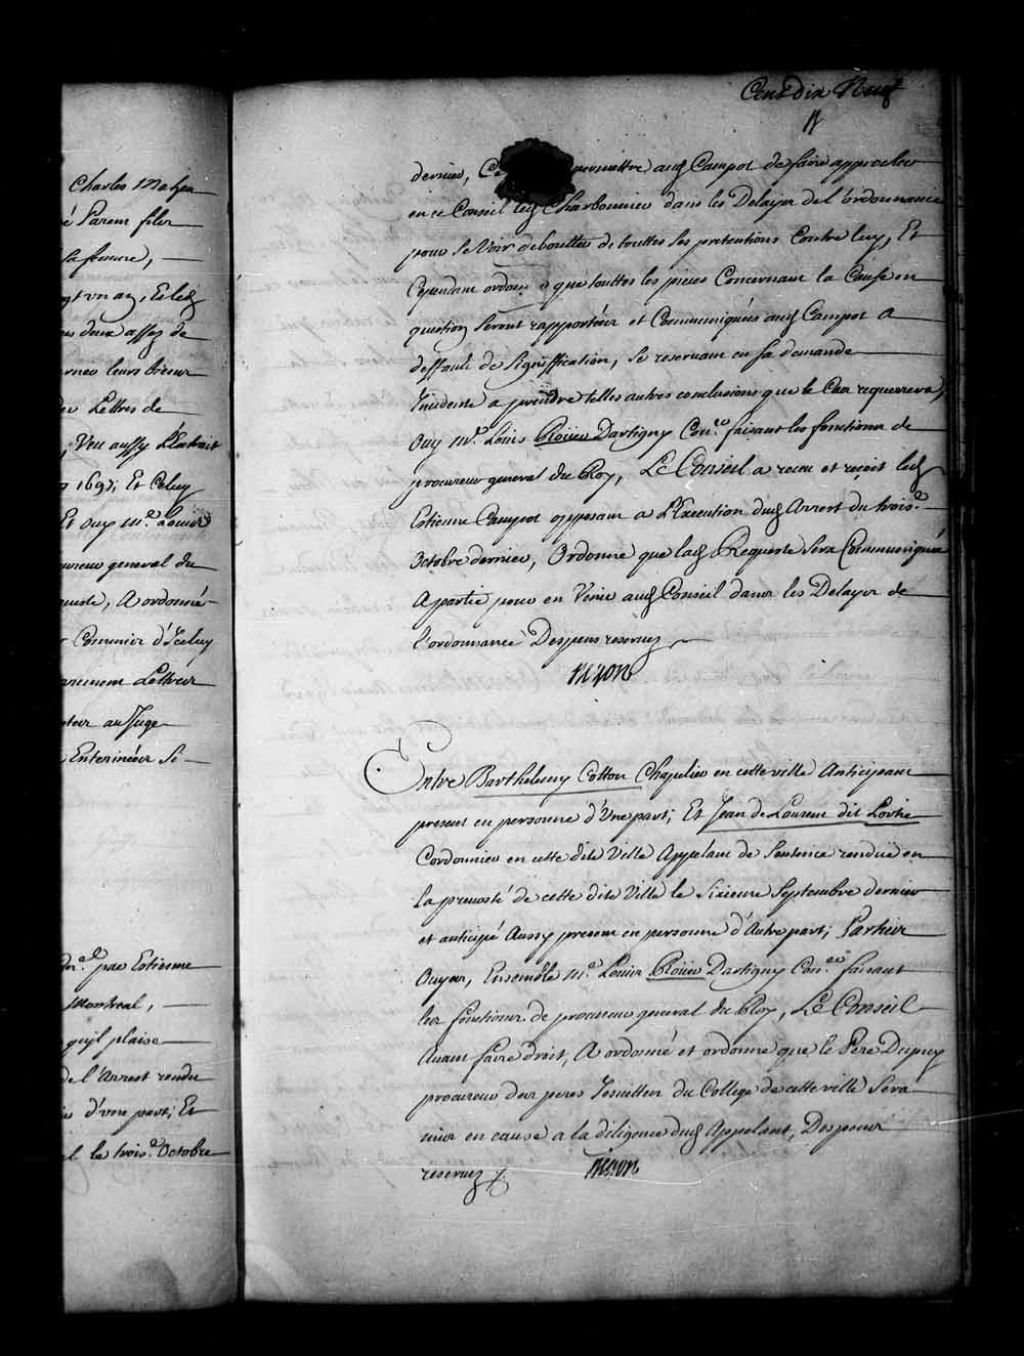 Cent dix Neuf
Charles Mahen
é Parent filz
sa femme,
Et led
es deux assez de
leurs biens
Lettres de
Veu aussy L'Extrait
1697; Et Celuy
Et ouy Me. Louis
procureur general du
A ordonné
d'Iceluy
Lettres
au Juge
Enteriner Si
par Estienne
Montreal,
qu'il plaise
de l'Arrest rendu
d'une part; Et
le trois.e Octobre
dernier, permettre aud Campot de faire approcher
en ce Conseil led Charbonnier dans les Delayx de l'ordonnance
pour se Voir deboutter de touttes ses pretentions Contre luy, Et
Cependant ordonné que touttes les pieces Concernant la Cause en
question Seront rapportées et Communiquées aud Campot a
deffault de Signiffication, se reservant en sa demande
Incidente a prendre telles autres conclusions que le Cas requerera,
Ouy Me. Louis Roüer Dartigny Con.er faisant les fonctions de
procureur general du Roy, Le Conseil a receu et reçoit led
Estienne Campot opposant a L'Execution dud Arrest du trois.e
Octobre dernier, Ordonne que lad Requeste Sera Communiquée
a partie pour en Venir aud Conseil dans les Delayx de
l'ordonnance Despens reservez
Entre Barthelemy Cotton Chapelier en cette ville Anticipant
present en personne d'Une part; Et Jean de Laurent dit Lortie
Cordonnier en cette dite Ville Appelant de Sentence rendüe en
la prevosté de cette dite Ville le Sixieme Septembre dernier
et anticipé Aussy present en personne d'Autre part; Parties
Ouyes, Ensemble Me. Louis Roüer Dartigny Con.er faisant
les fonctions de procureur general du Roy, Le Conseil
Avant faire droit, A ordonné et ordonne que le Pere Dupuy
procureur des peres Jesuittes du College de cette ville Sera
mis en cause a la diligence dud Appelant, Despens
reservez